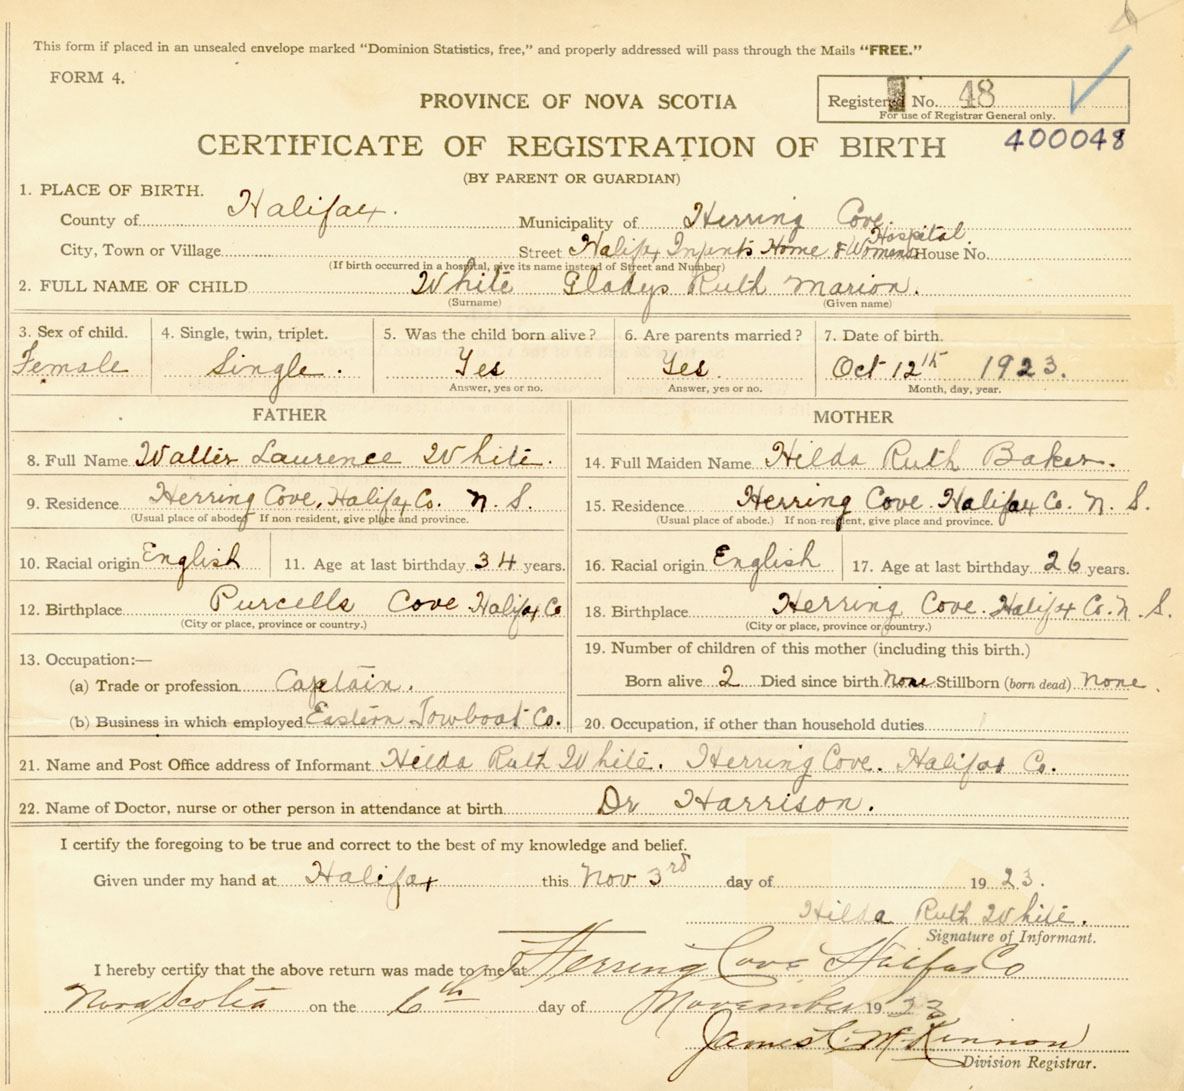 This form if placed in an unsealed envelope marked "Dominion Statistics, free," and properly addressed will pass through the Mails "FREE."
FORM 4.
Registered No. 48
For use of Registrar General only.
PROVINCE OF NOVA SCOTIA
400048
CERTIFICATE OF REGISTRATION OF BIRTH
(BY PARENT OR GUARDIAN)
1. PLACE OF BIRTH.
County of Halifax. Municipality of Herring Cove.
City, Town or Village Street Halifx Infants Home & Womens Hospital. House No.
(If birth occurred in a hospital, give its name instead of Street and Number)
2. FULL NAME OF CHILD White Gladys Ruth Marion.
(Surname) (Given name)
3. Sex of child. 4. Single, twin, triplet. 5. Was the child born alive? 6. Are parents married? 7. Date of birth.
Female Single. Yes Yes. Oct 12th 1923.
Answer, yes or no. Answer, yes or no. Month, day, year.
FATHER MOTHER
8. Full Name Walter Laurence White. 14. Full Maiden Name Hilda Ruth Baker.
9. Residence Herring Cove, Halifax Co. N. S. 15. Residence Herring Cove. Halifax Co. N. S.
(Usual place of abode) If non resident, give place and province. (Usual place of abode.) If non-resident, give place and province.
10. Racial origin English 11. Age at last birthday 34 years. 16. Racial origin English 17. Age at last birthday 26 years.
12. Birthplace Purcells Cove Halifax Co 18. Birthplace Herring Cove. Halifax Co. N. S.
(City or place, province or country.) (City or place, province or country.)
13. Occupation:— 19. Number of children of this mother (including this birth.)
(a) Trade or profession Captain. Born alive 2 Died since birth None Stillborn (born dead) None.
(b) Business in which employed Eastern Towboat Co. 20. Occupation, if other than household duties
21. Name and Post Office address of Informant Hilda Ruth White. Herring Cove. Halifax Co.
22. Name of Doctor, nurse or other person in attendance at birth Dr Harrison.
I certify the foregoing to be true and correct to the best of my knowledge and belief.
Given under my hand at Halifax this Nov 3rd day of 1923.
Hilda Ruth White.
Signature of Informant.
I hereby certify that the above return was made to me at Herring Cove Halifax Co
Nova Scotia on the 6th day of November 1923
James C. McKinnon
Division Registrar.